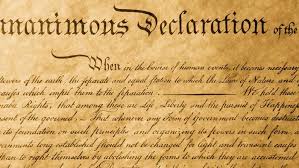 nanimous Declaration of the
When in the Course of human events, it becomes necessary
powers of the earth, the separate and equal station to which the Laws of Nature and
causes which impel them to the separation. We hold these
nable Rights, that among these are Life, Liberty and the pursuit of Happine
sent of the governed, — That whenever any Form of Government becomes destructive
its foundation on such principles and organizing its powers in such form,
ments long established should not be changed for light and transient causes
than to right themselves by abolishing the forms to which they are accustomed.